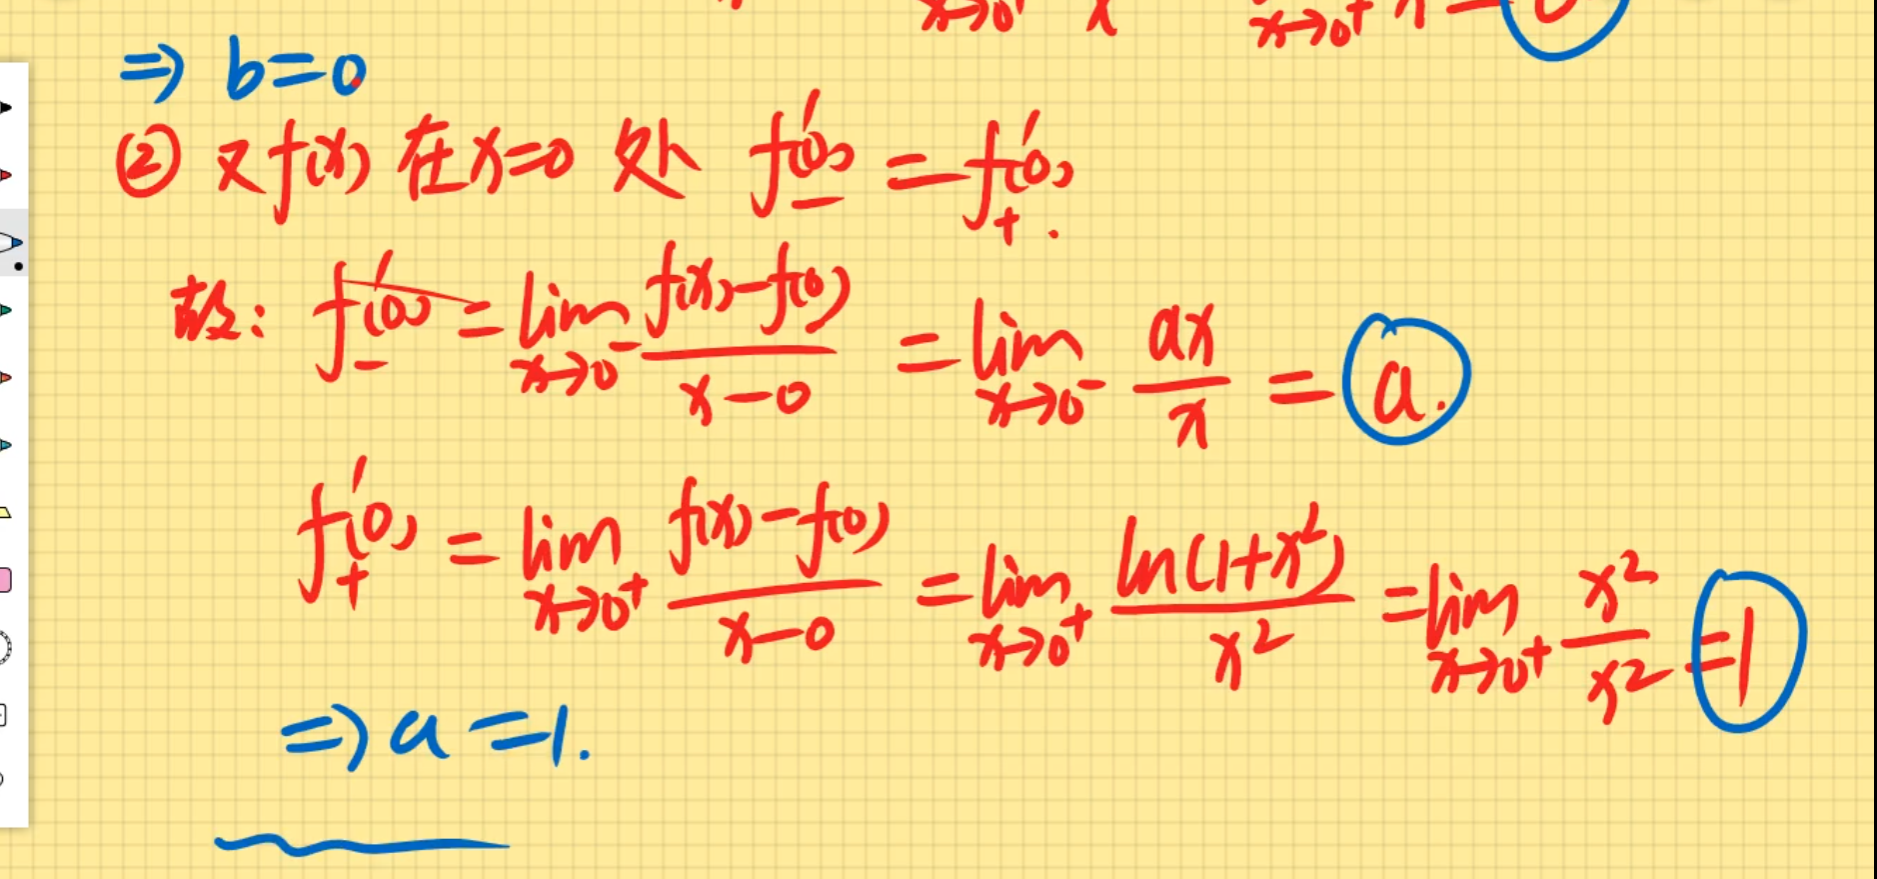 x→0⁺ x x→0⁺ x = 0
⇒ b=0
② 又f(x) 在x=0 处 f₋′(0) = f₊′(0).
故: f₋′(0) = lim_{x→0⁻} (f(x)-f(0))/(x-0) = lim_{x→0⁻} ax/x = a.
f₊′(0) = lim_{x→0⁺} (f(x)-f(0))/(x-0) = lim_{x→0⁺} ln(1+x²)/x² = lim_{x→0⁺} x²/x² = 1
⇒ a=1.